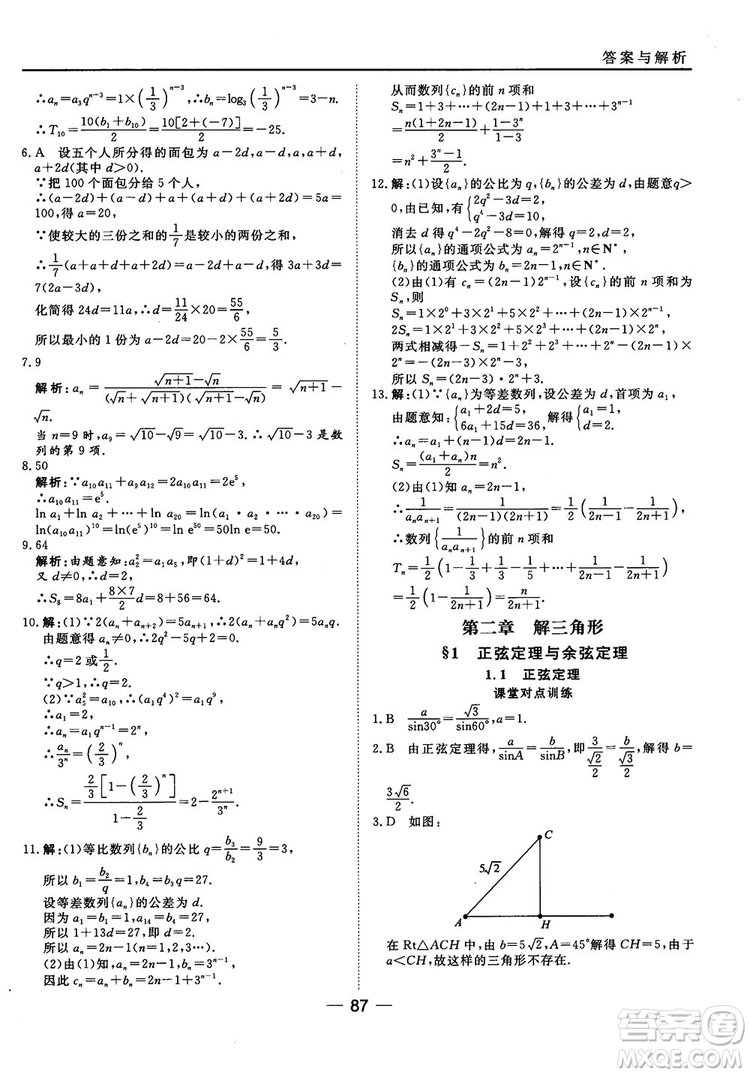 答案与解析
∴aₙ=a₃qⁿ⁻³=1×(1/3)ⁿ⁻³,∴bₙ=log₃(1/3)ⁿ⁻³=3-n.
∴T₁₀=10(b₁+b₁₀)/2=10[2+(-7)]/2=-25.
6.A 设五个人所分得的面包为a-2d,a-d,a,a+d,
a+2d(其中d>0).
∵把100个面包分给5个人,
∴(a-2d)+(a-d)+a+(a+d)+(a+2d)=5a=
100,得a=20,
∵使较大的三份之和的1/7是较小的两份之和,
∴1/7(a+a+d+a+2d)=a-d+a-2d,得3a+3d=
7(2a-3d)
化简得24d=11a,∴d=11/24×20=55/6,
所以最小的1份为a-2d=20-2×55/6=5/3.
7.9
解析:aₙ=(√(n+1)-√n)/((√n+√(n+1))(√(n+1)-√n))=√(n+1)-
√n.
当n=9时,a₉=√10-√9=√10-3,∴√10-3是数
列的第9项.
8.50
解析:∵a₁₀a₁₁+a₉a₁₂=2a₁₀a₁₁=2e⁵,
∴a₁₀a₁₁=e⁵.
ln a₁+ln a₂+…+ln a₂₀=ln(a₁·a₂·…·a₂₀)=
ln(a₁₀a₁₁)¹⁰=10ln(e⁵)=50.
9.64
解析:由题意可知:a₂²=a₁a₅,即(1+d)²=1+4d,
又d≠0,∴d=2,
∴S₈=8a₁+8×7/2d=8+56=64.
10.解:(1)∵2(aₙ+aₙ₊₂)=5aₙ₊₁,∴2aₙ+2aₙq²=5aₙq.
由题意得aₙ≠0,∴2q²-5q+2=0,
∴q=2或1/2.
∵q>1,∴q=2.
(2)∵a₅²=a₁₀,∴(a₁q⁴)²=a₁q⁹.
∴a₁=2,
∴aₙ=a₁qⁿ⁻¹=2ⁿ,
∴aₙ/3ⁿ=(2/3)ⁿ,
∴Sₙ=2/3[1-(2/3)ⁿ]/(1-2/3)=2-2ⁿ⁺¹/3ⁿ.
11.解:(1)等比数列{bₙ}的公比q=b₃/b₂=9/3=3,
所以b₁=b₂/q=1,b₄=b₃q=27.
设等差数列{aₙ}的公差为d.
因为a₁=b₁=1,a₁₄=b₄=27,
所以1+13d=27,即d=2.
所以aₙ=2n-1(n=1,2,3,…).
(2)由(1)知,aₙ=2n-1,bₙ=3ⁿ⁻¹.
因此cₙ=aₙ+bₙ=2n-1+3ⁿ⁻¹.
从而数列{cₙ}的前n项和
Sₙ=1+3+…+(2n-1)+1+3+…+3ⁿ⁻¹
=n(1+2n-1)/2+(1-3ⁿ)/(1-3)
=n²+(3ⁿ-1)/2.
12.解:(1)设{aₙ}的公比为q,{bₙ}的公差为d,由题意q>
0,由已知,有{2q²-3d=2,q⁴-3d=10,
消去d得q⁴-2q²-8=0,解得q=2,d=2,
所以{aₙ}的通项公式为aₙ=2ⁿ⁻¹,n∈N*,
{bₙ}的通项公式为bₙ=2n-1,n∈N*.
(2)由(1)有cₙ=(2n-1)2ⁿ⁻¹,设{cₙ}的前n项和为
Sₙ,则
Sₙ=1×2⁰+3×2¹+5×2²+…+(2n-1)×2ⁿ⁻¹,
2Sₙ=1×2¹+3×2²+5×2³+…+(2n-1)×2ⁿ,
两式相减得-Sₙ=1+2²+2³+…+2ⁿ-(2n-1)×
2ⁿ=-(2n-3)×2ⁿ-3,
所以Sₙ=(2n-3)·2ⁿ+3.
13.解:(1)∵{aₙ}为等差数列,设公差为d,首项为a₁,
由题意知:{a₁+2d=5,6a₁+15d=36,解得{a₁=1,d=2,
∴aₙ=a₁+(n-1)d=2n-1.
Sₙ=(a₁+aₙ)n/2=n².
(2)由(1)知:aₙ=2n-1,
∴1/(aₙaₙ₊₁)=1/((2n-1)(2n+1))=1/2(1/(2n-1)-1/(2n+1))
∴数列{1/(aₙaₙ₊₁)}的前n项和为
Tₙ=1/2(1-1/3+1/3-1/5+…+1/(2n-1)-1/(2n+1))
=1/2(1-1/(2n+1))=n/(2n+1).
第二章 解三角形
§1 正弦定理与余弦定理
1.1 正弦定理
课堂对点训练
1.B a/sin30°=√3/sin60°,a=1.
2.B 由正弦定理得,a/sinA=b/sinB,即3/(√2/2)=b/(√3/2),解得b=
3√6/2.
3.D 如图:
C
5√2
A H
在Rt△ACH中,由b=5√2,A=45°解得CH=5,由于
a<CH,故这样的三角形不存在.
87
答案圈
MXQE.COM